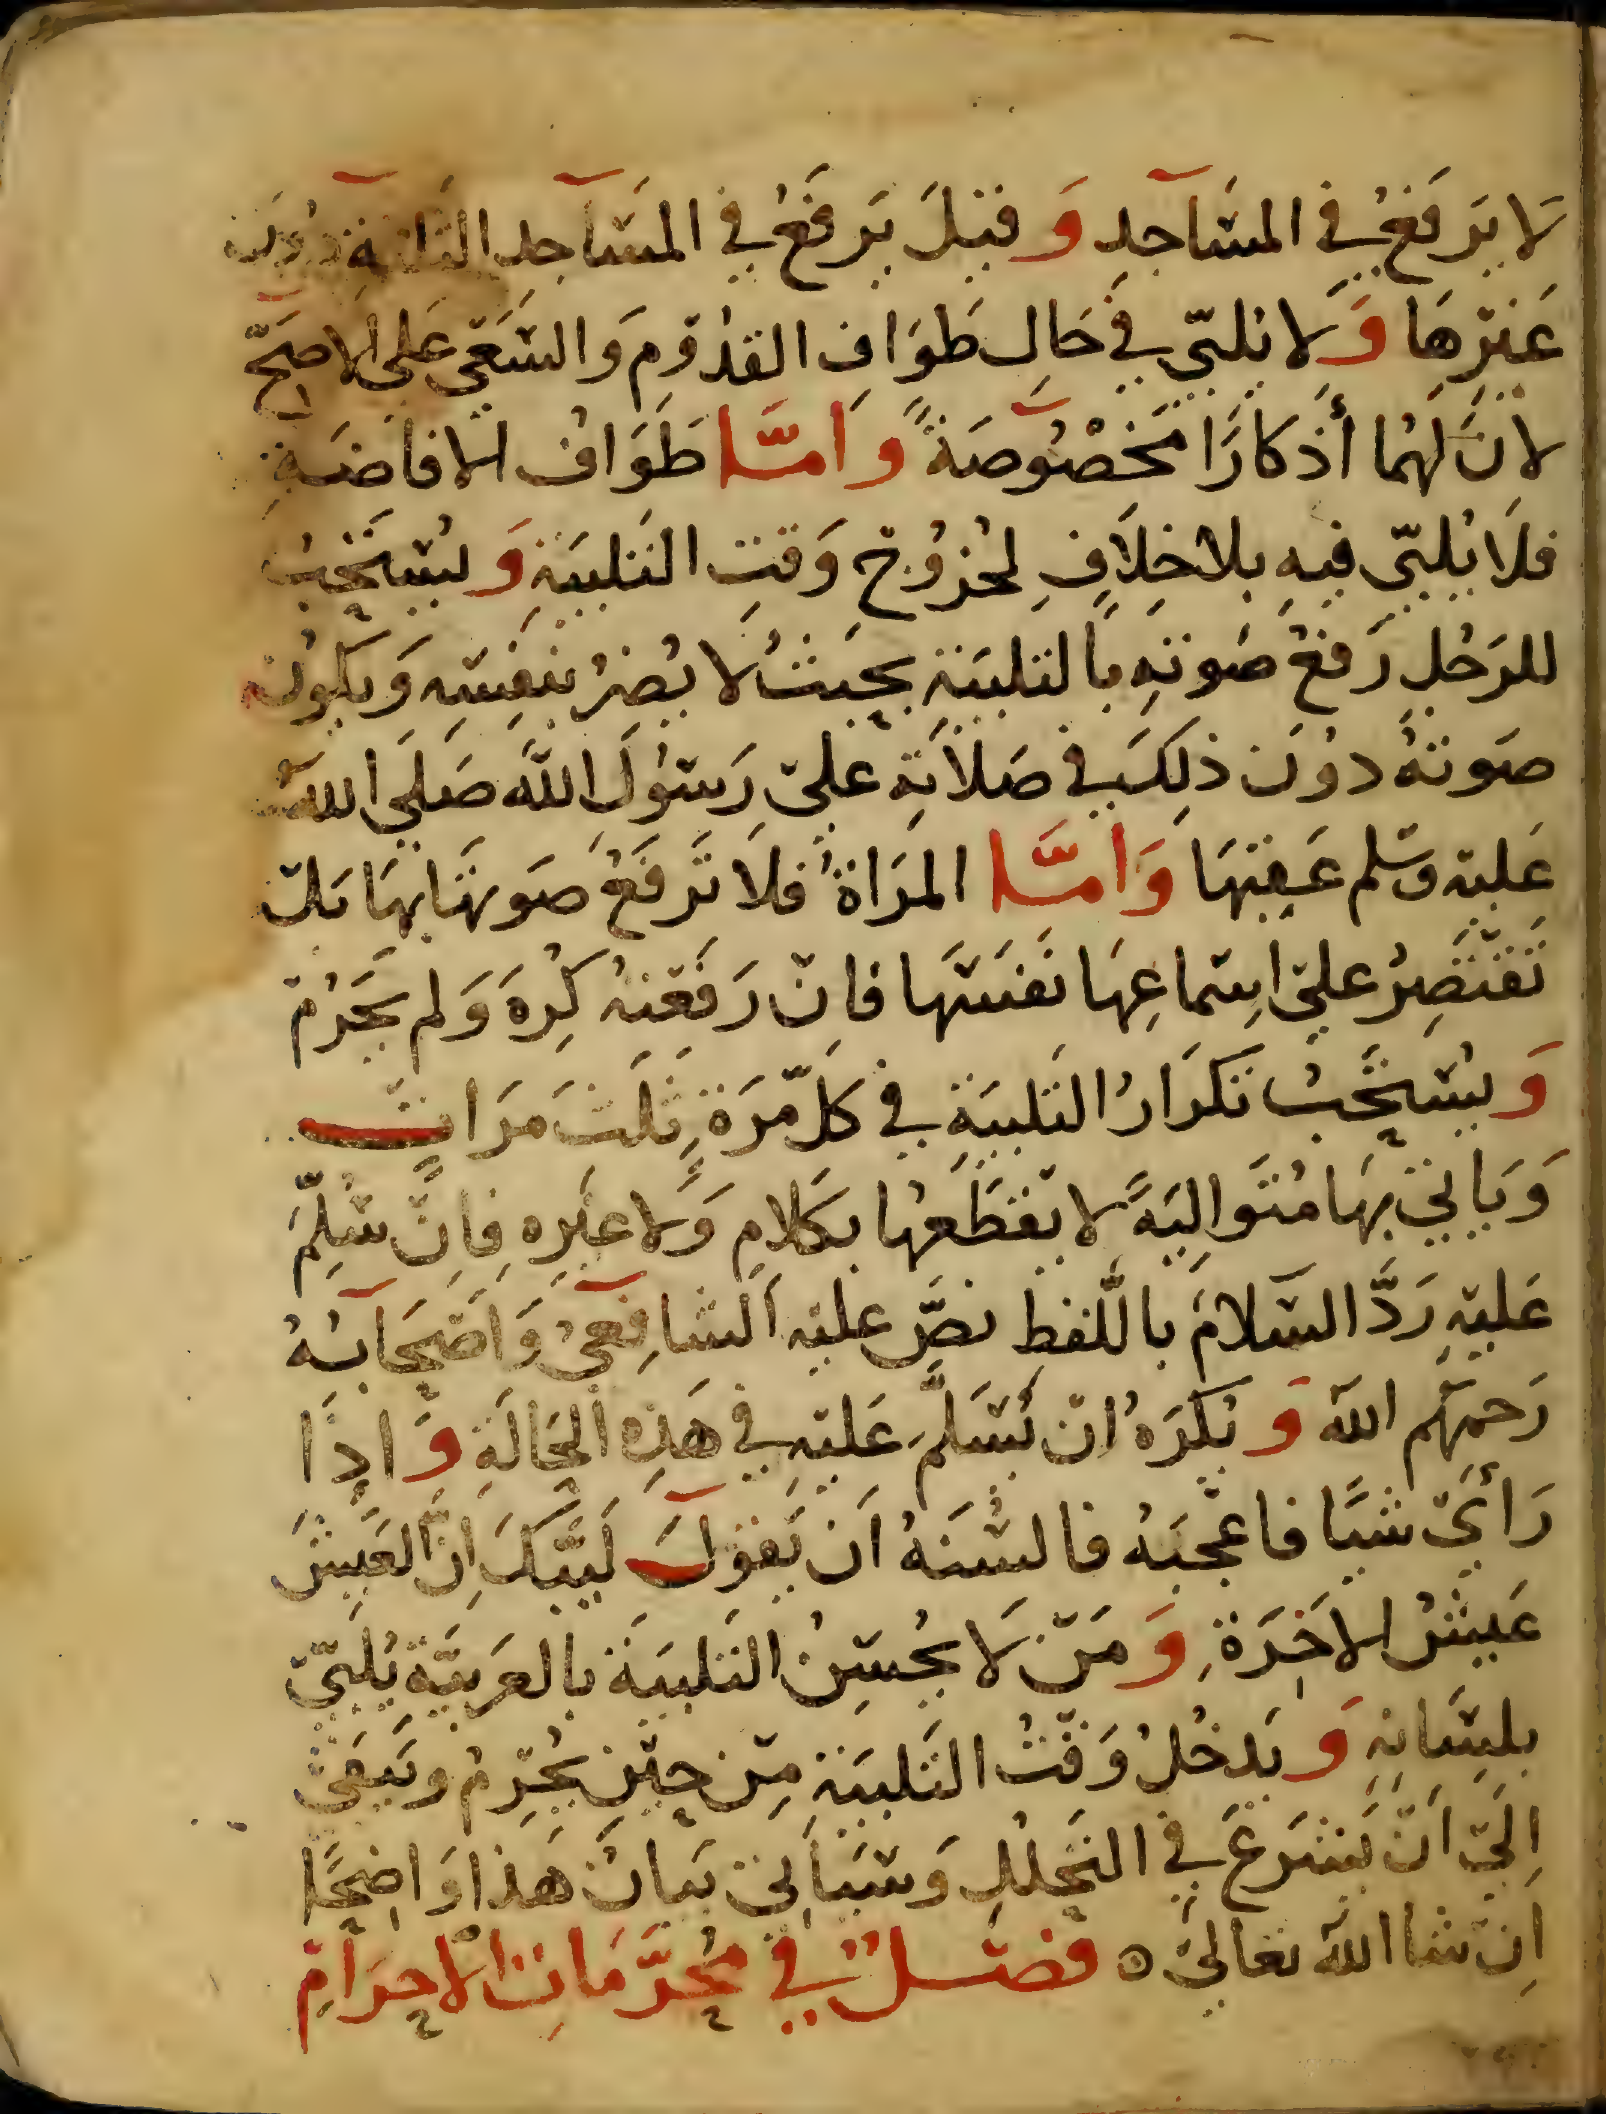 لَا يَرفَعُ في المسَاجد وَقيلَ يَرفَعُ في المسَاجد الثلاثة دُونَ
غَيْرِهَا وَلا يُلبّي في حَال طَوَاف القدُوم وَالسَعْي عَلى الاصَحّ
لانَّ لهُما أذكارًا مخْصُوصَةً وَامَّا طَوَاف الافاضَةِ
فلَا يُلبّي فيهِ بلا خِلَافٍ لخرُوج وَقتِ التَلبيَةِ وَيُستَحَبُ
للرَجُلِ رَفعُ صَوتهِ بالتلبيَةِ بحَيثُ لا يُضرُ بنفسِه وَيكونُ
صَوتهُ دوُنَ ذلكَ في صَلاتهِ عليْ رَسوُل اللّه صَلى الله
عَليْه وسَلم عَقِيْبَهَا وَامَّا المرَاةُ فلَا تَرفَعُ صَوتهَا بهَا بَلْ
تَقْتَصِرُ عليْ اسْماعِهَا نَفسَهَا فانْ رَفَعْتهُ كُرِهَ وَلم يَحْرُمْ
وَيُسْتَحَبُ تَكرَارُ التَلبيَةِ في كلّ مَرَةٍ ثلَثَ مَرَاتٍ
وَيَاتي بهَا مُتَوَاليَةً لا يَقْطَعُها بكَلامٍ وَلا غيرهِ فانْ سُلِّمَ
عَليْهِ رَدَّ السَلامَ باللَّفظ نصَّ عليْه الشافِعيُ وَاصْحَابُهُ
رَحمهُم اللّه وَيُكرَهُ انْ يُسَلَّمَ عَليْهِ في هَذِهِ الحَالَةِ وَاذَا
رَأيْ شيًا فاعْجبَهُ فالسُنَةُ اَن يَقُولَ لَبَّيكَ اِنَّ العَيشَ
عَيشُ الاخِرَةِ وَمَنْ لَا يُحْسِنُ التَلبيَةَ بالعَربيَّةِ يُلَبّيْ
بلِسَانِهِ وَيَدخُلُ وَقْتُ التَلبيَةِ مِنْ حيْن يُحْرِمُ وَيَبقيْ
اِليْ اَنْ يَشرَعَ في التَحَلُلِ وَسَيَاتيْ بَيَانُ هَذا وَاضِحًا
اِنْ شا اللّه تعَاليْ ه فصْلٌ في محَرَّمَاتِ الاحرَامِ